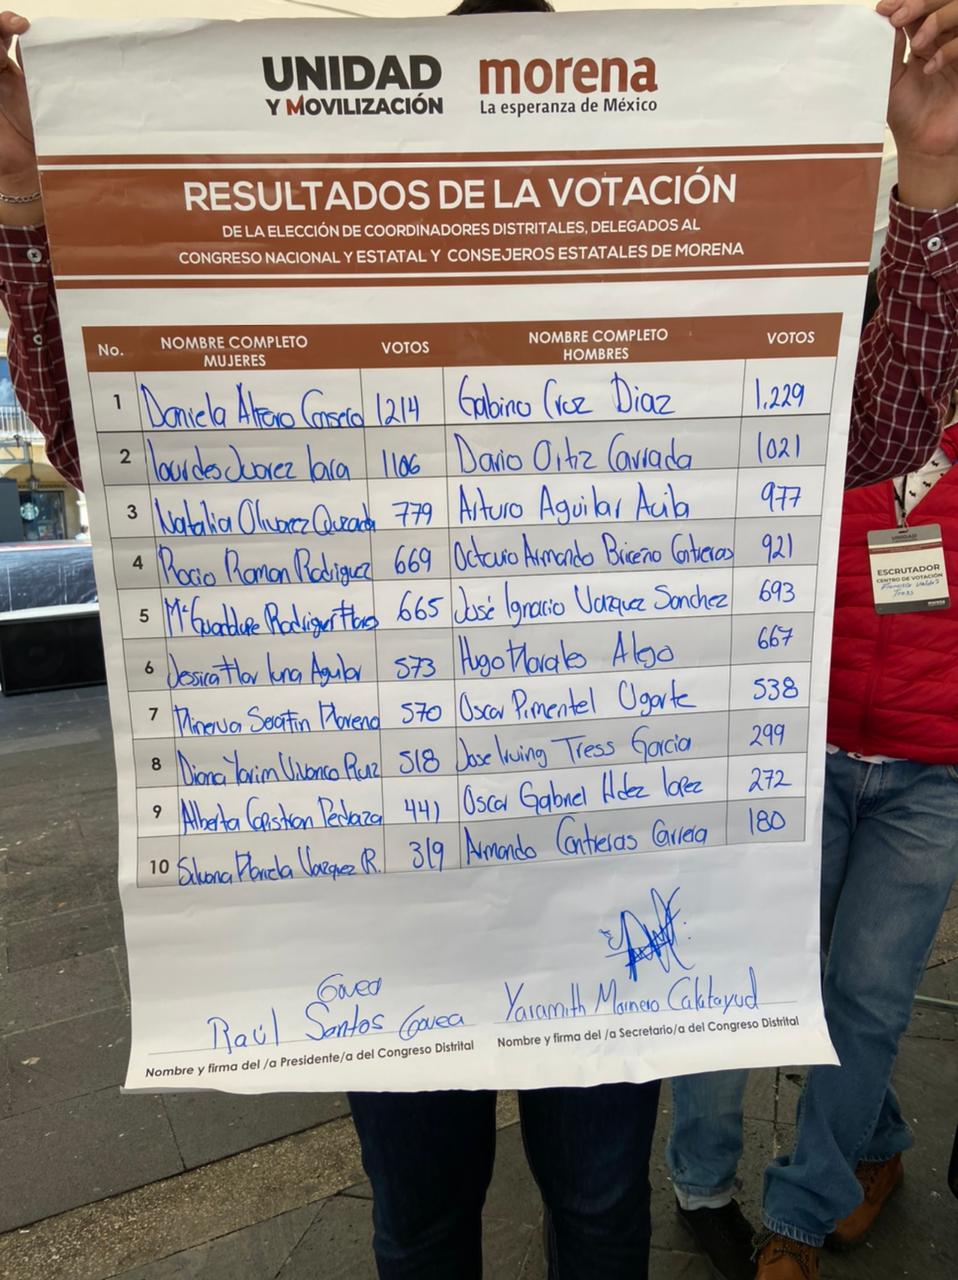 UNIDAD
Y MOVILIZACIÓN
morena
La esperanza de México
RESULTADOS DE LA VOTACIÓN
DE LA ELECCIÓN DE COORDINADORES DISTRITALES, DELEGADOS AL
CONGRESO NACIONAL Y ESTATAL Y CONSEJEROS ESTATALES DE MORENA
No. NOMBRE COMPLETO MUJERES VOTOS NOMBRE COMPLETO HOMBRES VOTOS
1 Daniela Alfaro 1214 Gabino Cruz Diaz 1,229
2 Lourdes Juarez Lara 1106 Dario Ortiz Carrada 1021
3 Natalia Olivarez Quezada 779 Arturo Aguilar Avila 977
4 Rocio Roman Rodriguez 669 Octavio Armando Briceño Contreras 921
5 Ma Guadalupe Rodriguez Flores 665 José Ignacio Vazquez Sanchez 693
6 Jessica Flor Luna Aguilar 573 Hugo Morales Alejo 667
7 Minerva Serafin Moreno 570 Oscar Pimentel Ugarte 538
8 Diana Yarim Vivanco Ruiz 518 Jose Irving Tress Garcia 299
9 Alberta Cristian Pedraza 441 Oscar Gabriel Hdez Lopez 272
10 Silvana Mariela Vazquez R. 319 Armando Contreras Carrera 180
Govea
Raúl Santos Govea
Nombre y firma del /a Presidente/a del Congreso Distrital
Yaramith Marnero Calatayud
Nombre y firma del /a Secretario/a del Congreso Distrital
UNIDAD
ESCRUTADOR
CENTRO DE VOTACIÓN
Francisco Valdes
Tress
morena